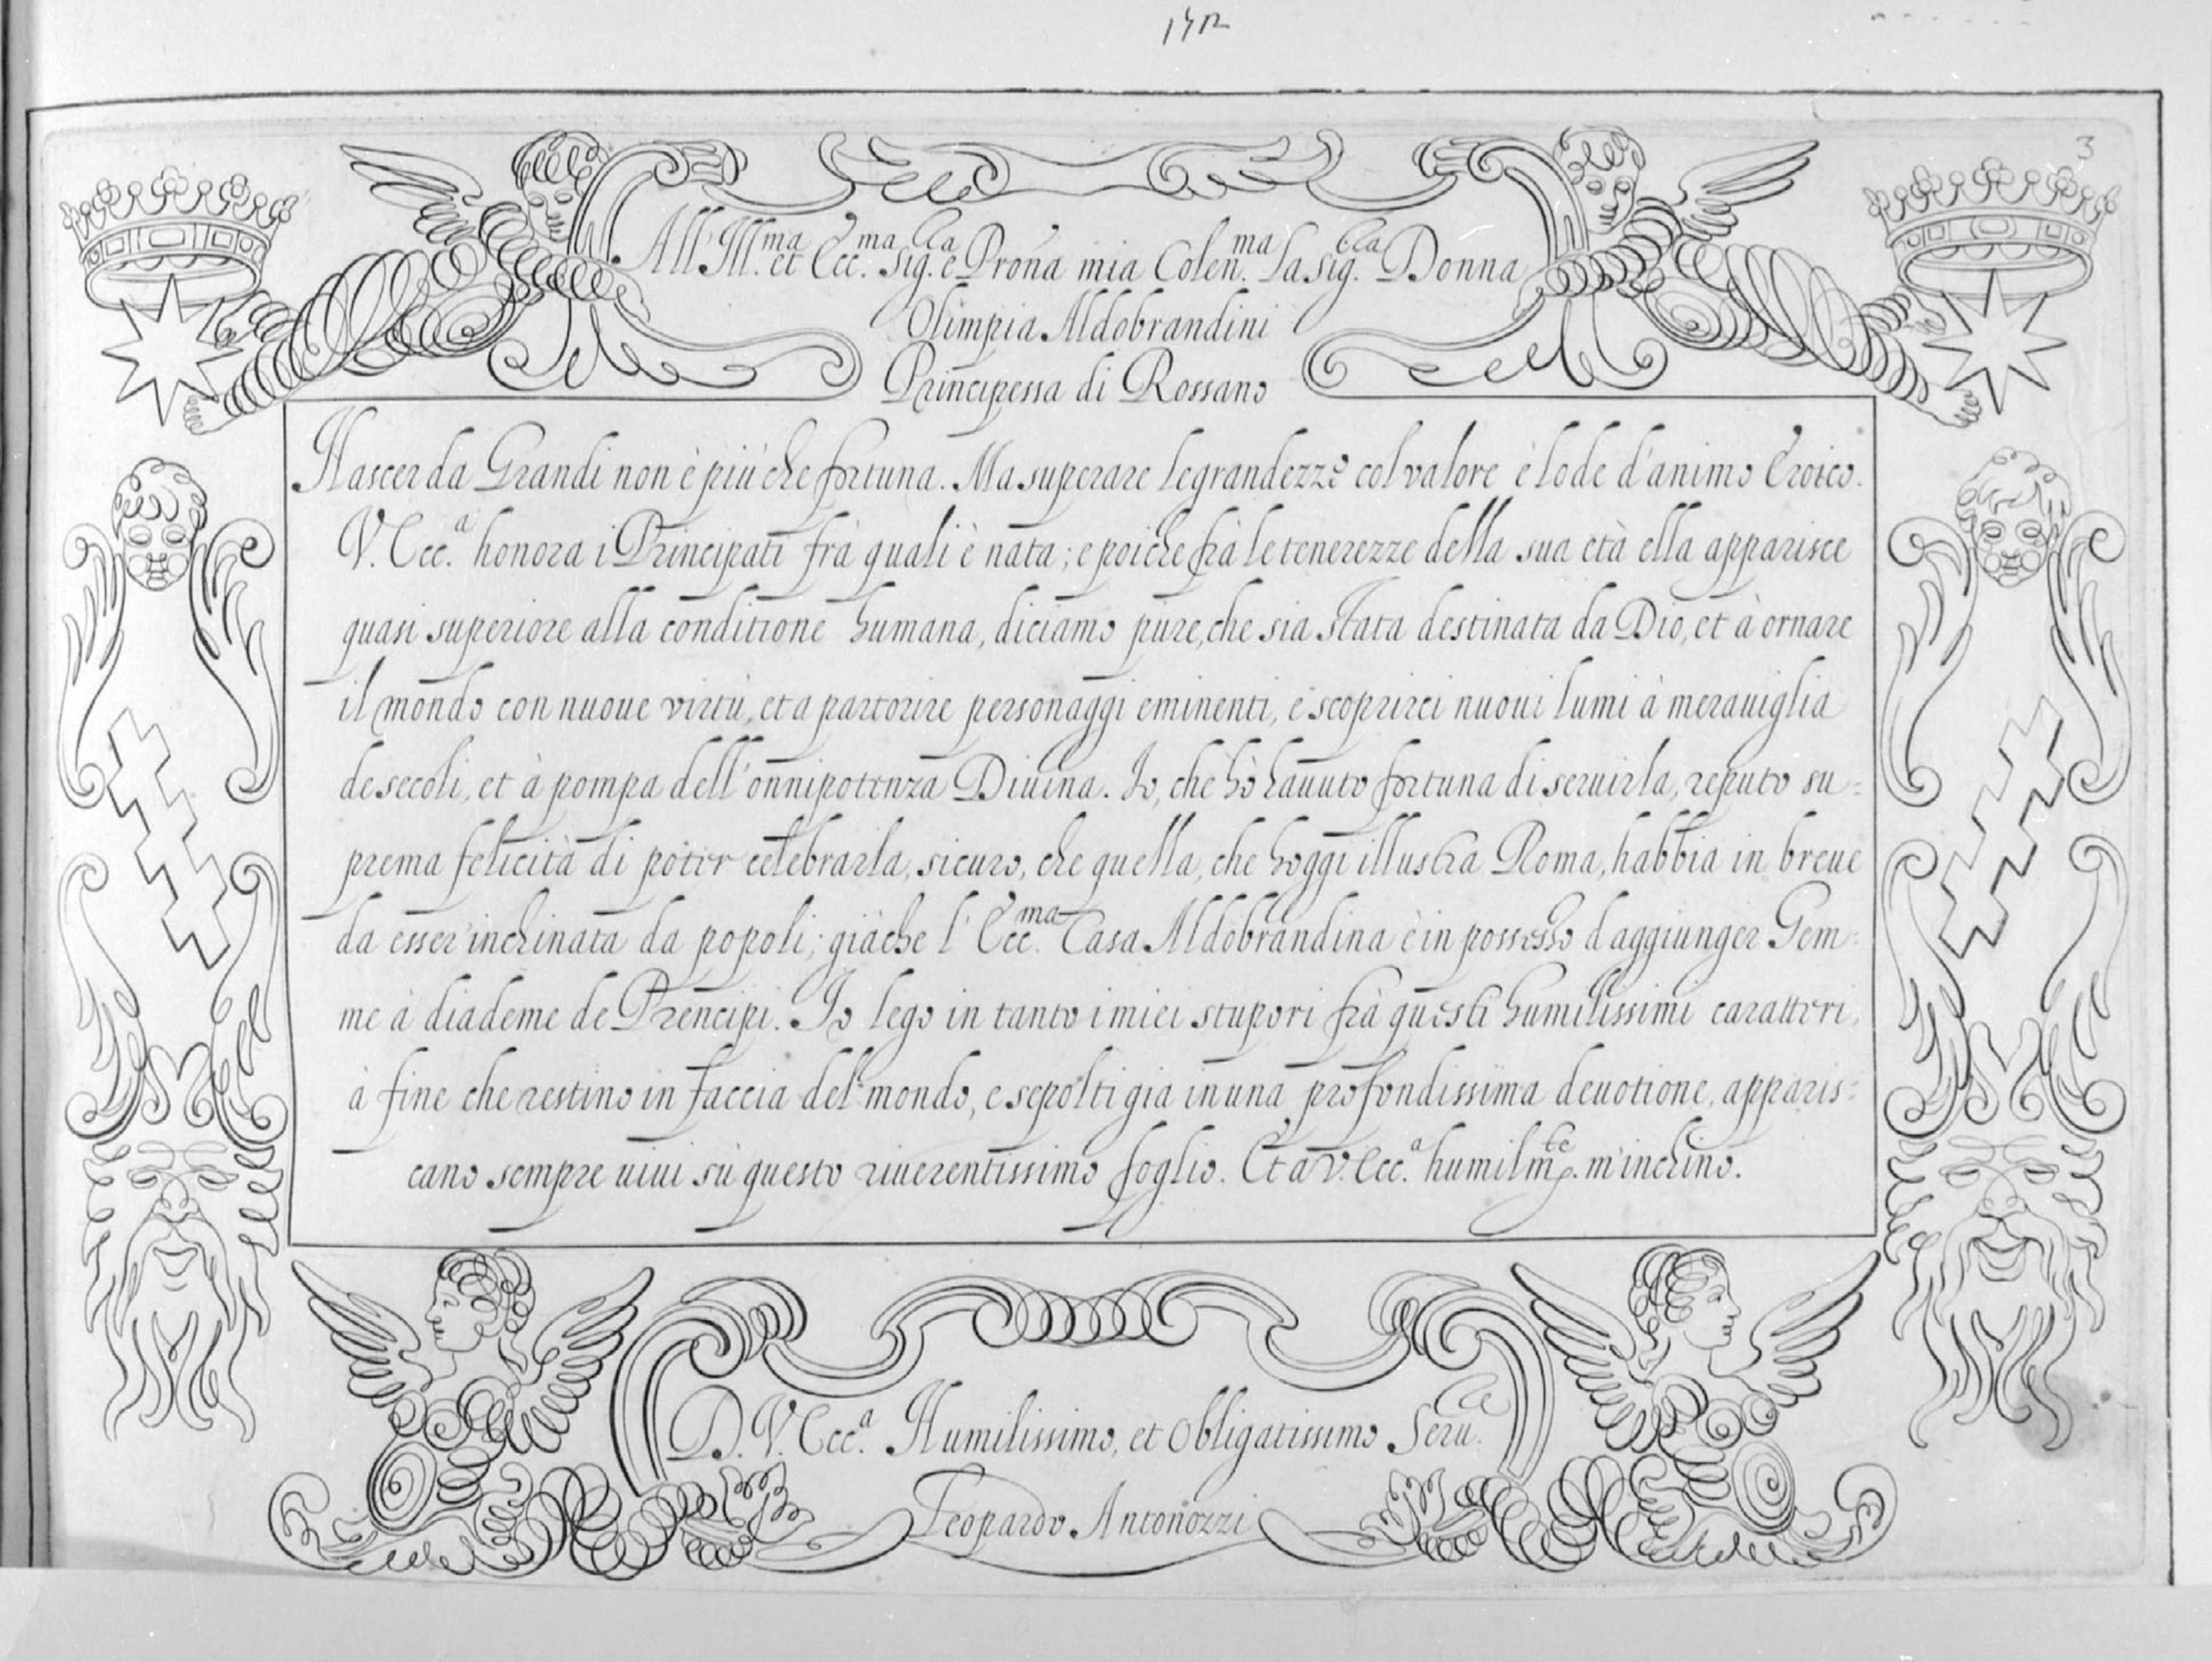 3
All' Ill.ma et Ecc.ma Sig.ra e Prona mia Colen.ma La Sig.ra Donna
Olimpia Aldobrandini
Principessa di Rossano
Nascer da Grandi non è più che fortuna. Ma superare le grandezze col valore è lode d'animo Eroico.
V. Ecc.a honora i Principati frà quali è nata; e poiche frà le tenerezze della sua età ella apparisce
quasi superiore alla conditione humana, diciamo pure, che sia stata destinata da Dio, et à ornare
il mondo con nuoue virtù, et a partorire personaggi eminenti, e scoprirci nuoui lumi à merauiglia
de secoli, et à pompa dell'onnipotenza Diuina. Io, che hò hauuto fortuna di seruirla, reputo su=
prema felicità di poter celebrarla, sicuro, che quella, che hoggi illustra Roma, habbia in breue
da esser inchinata da popoli; giàche l'Ecc.ma Casa Aldobrandina è in possesso d'aggiunger Gem=
me à diademe de Prencipi. Io lego in tanto i miei stupori frà questi humilissimi caratteri,
à fine che restino in faccia del mondo, e sepolti gia in una profondissima deuotione, apparis=
cano sempre uiui sù questo riuerentissimo foglio. Et à V. Ecc.a humilm.te m'inchino.
D. V. Ecc.a Humilissimo, et obligatissimo Seru.
Leopardo Antonozzi